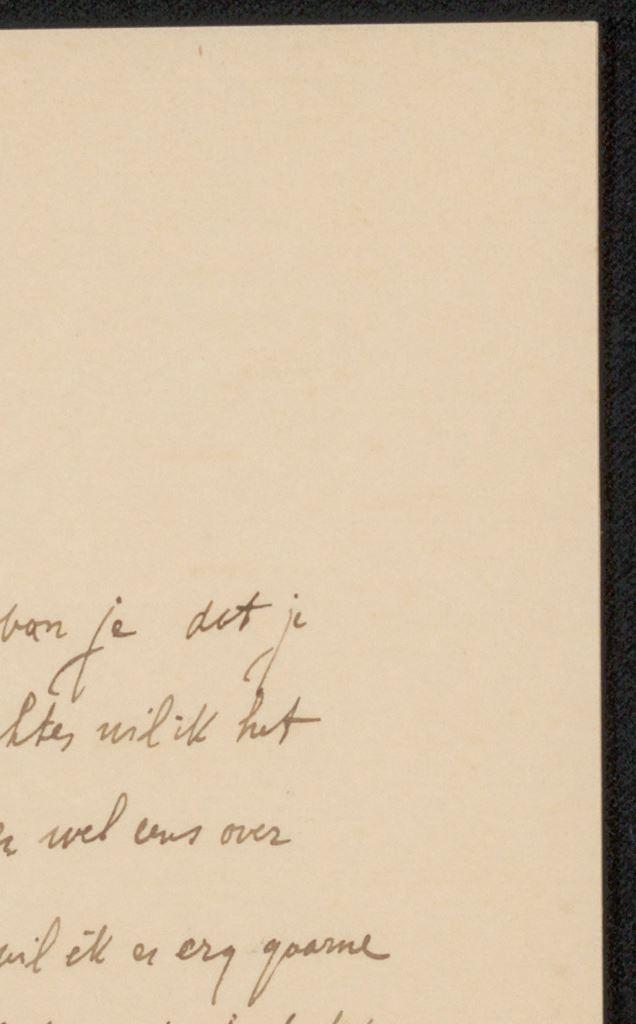 van je dat je
wil ik het
wel eens over
wil ik er erg gaarne